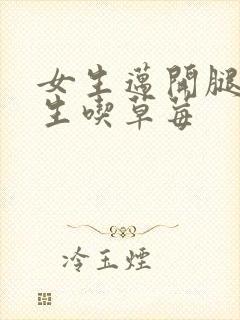 女生邁開腿
生喫草莓
冷玉煙